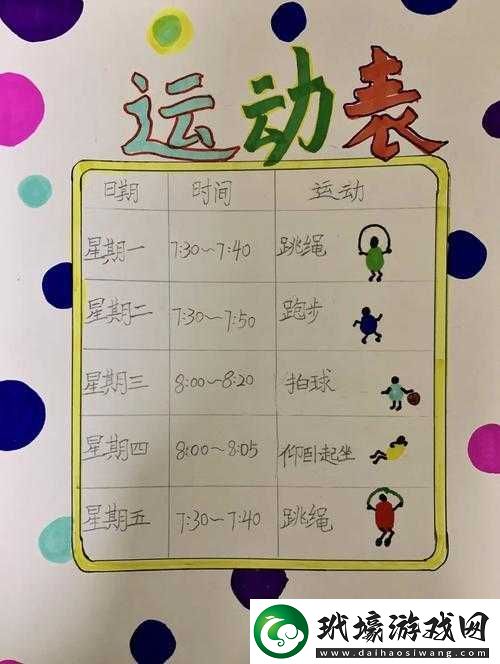 运动表
日期 时间 运动
星期一 7:30～7:40 跳绳
星期二 7:30～7:50 跑步
星期三 8:00～8:20 拍球
星期四 8:00～8:05 仰卧起坐
星期五 7:30～7:40 跳绳
玳壕游戏网
www.daihaosiwang.com